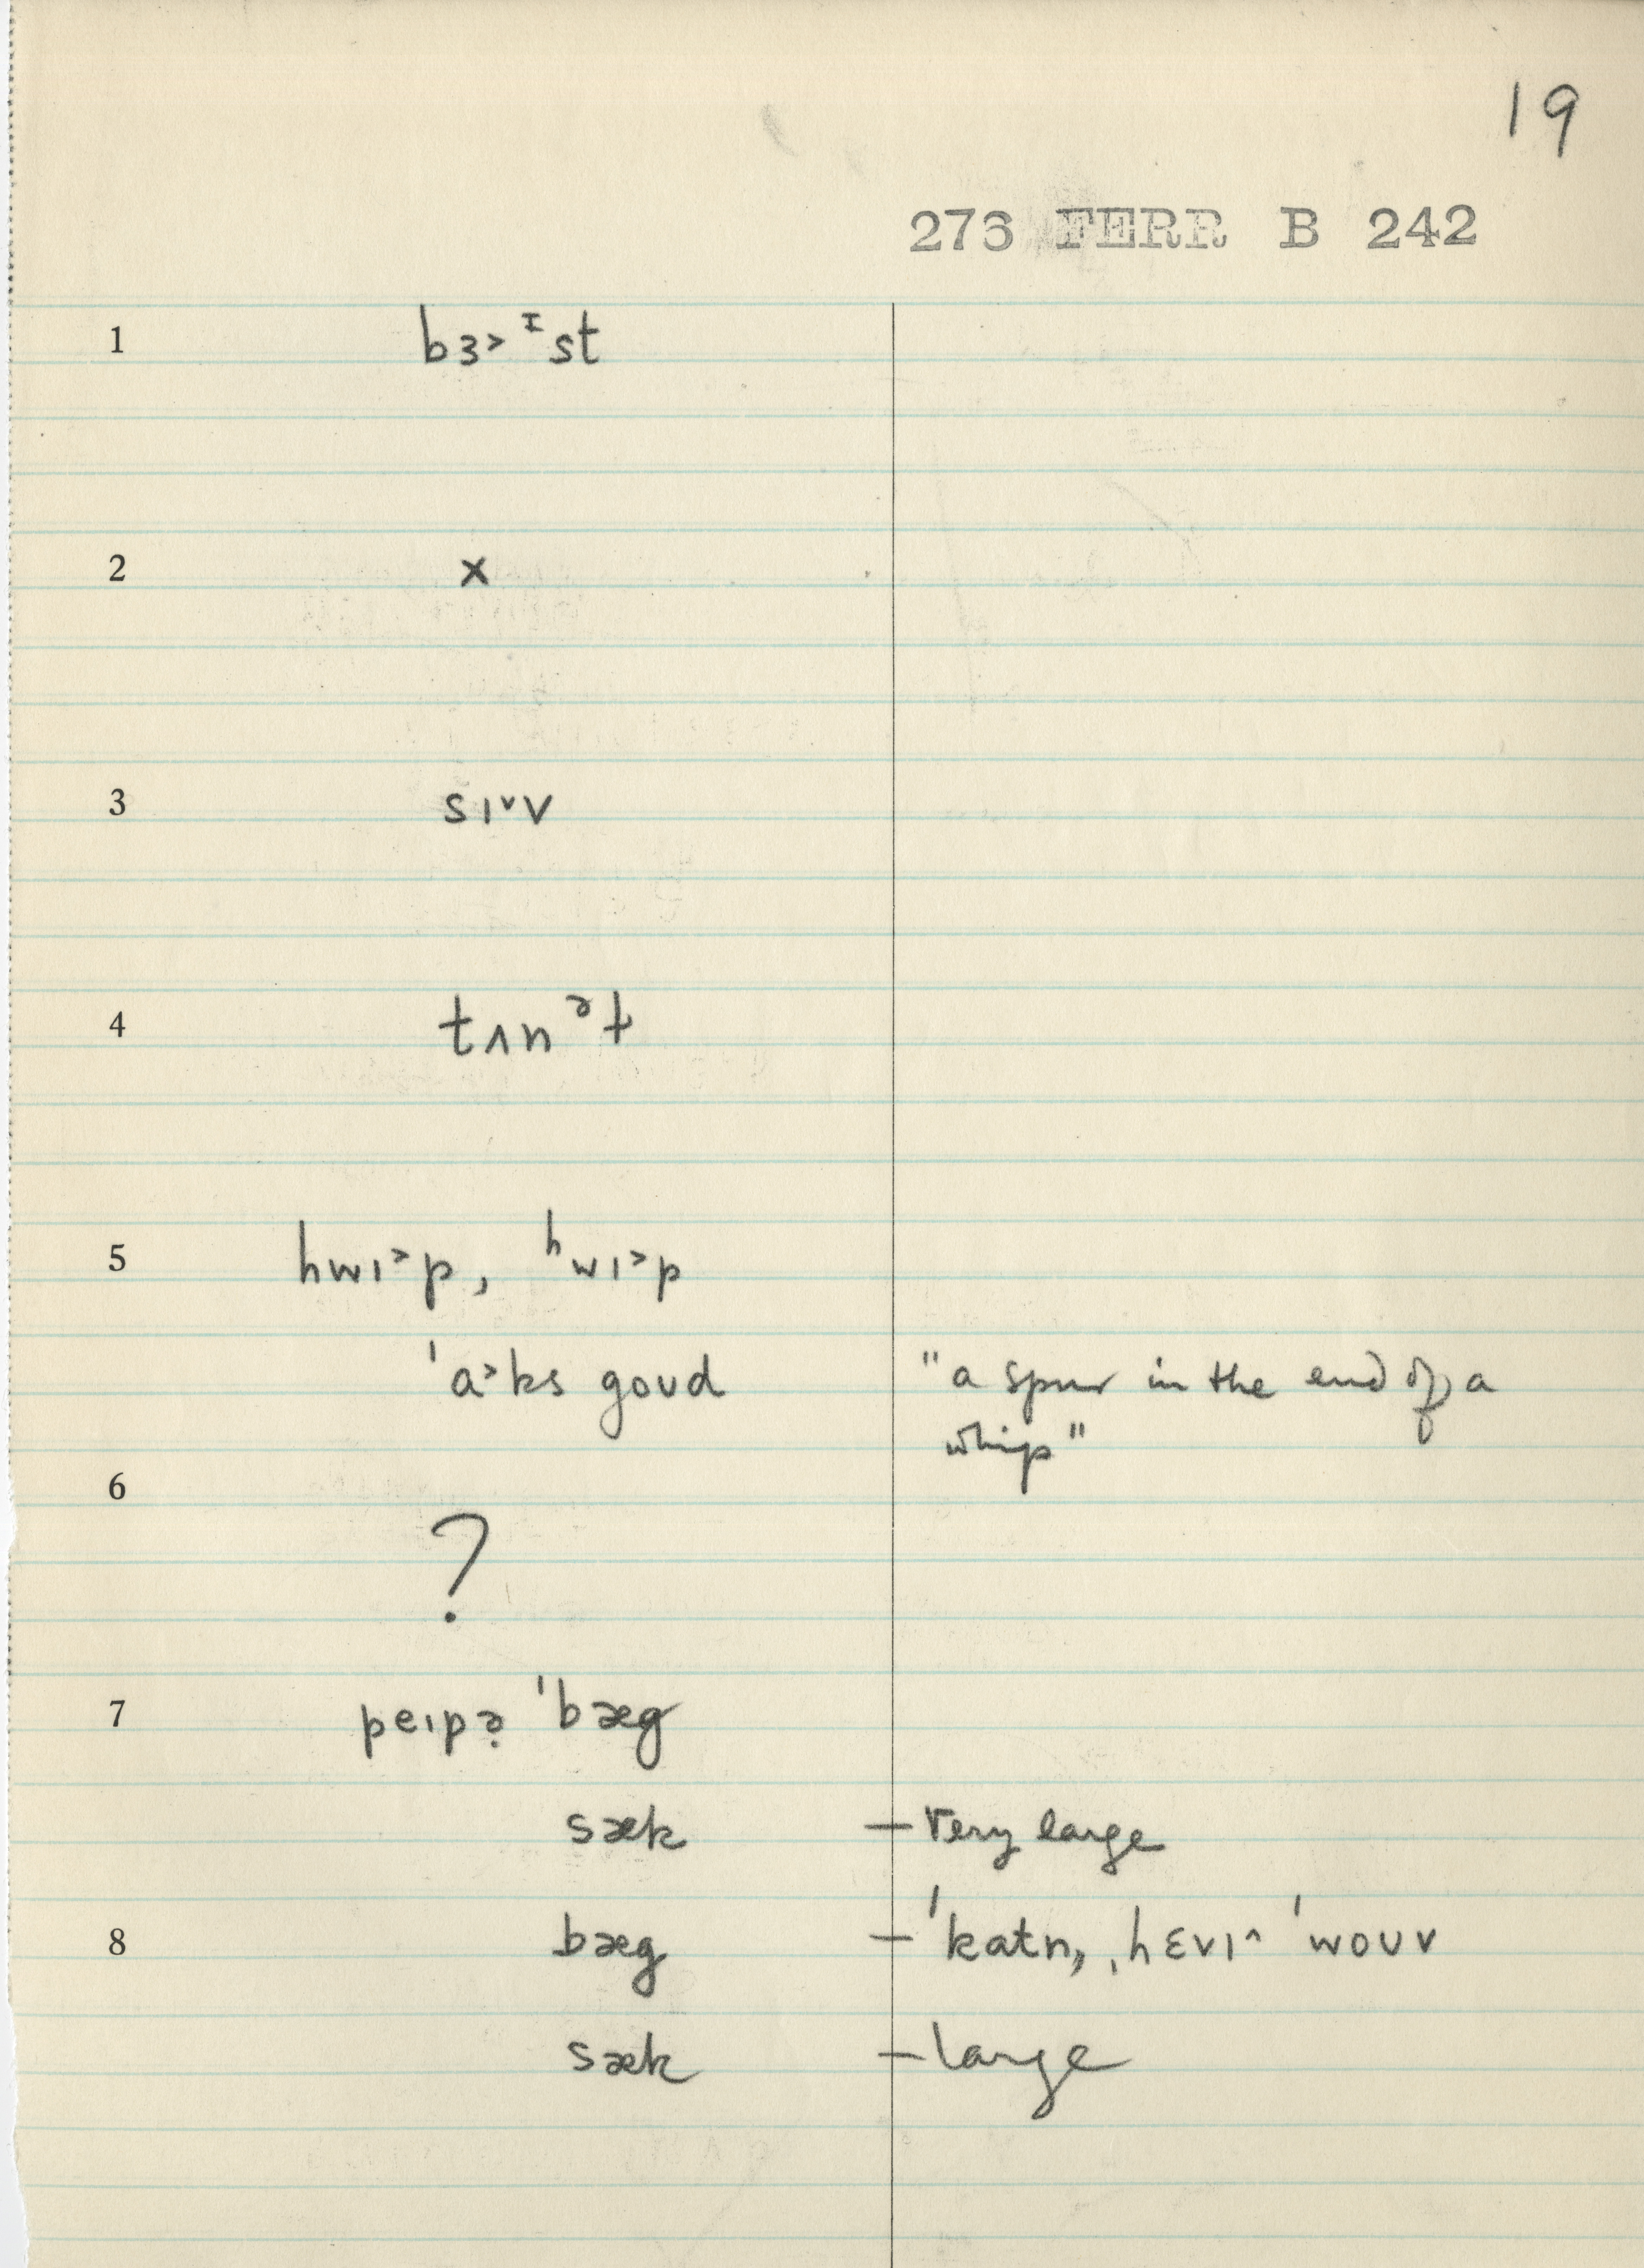 19
276 FERR B 242
1 bɜ˃ ᶦst
2 x
3 sɪ˅v
4 tʌnᵊɫ
5 hwɪ˃p, ʰwɪ˃p
ˈa˃ks goʊd "a spur in the end of a
whip"
6
?
7 peɪpə̣ ˈbæg
sæk – very large
8 bæg – ˈkatn̩, ˌhɛvɪ˄ ˈwoʊv
sæk – large